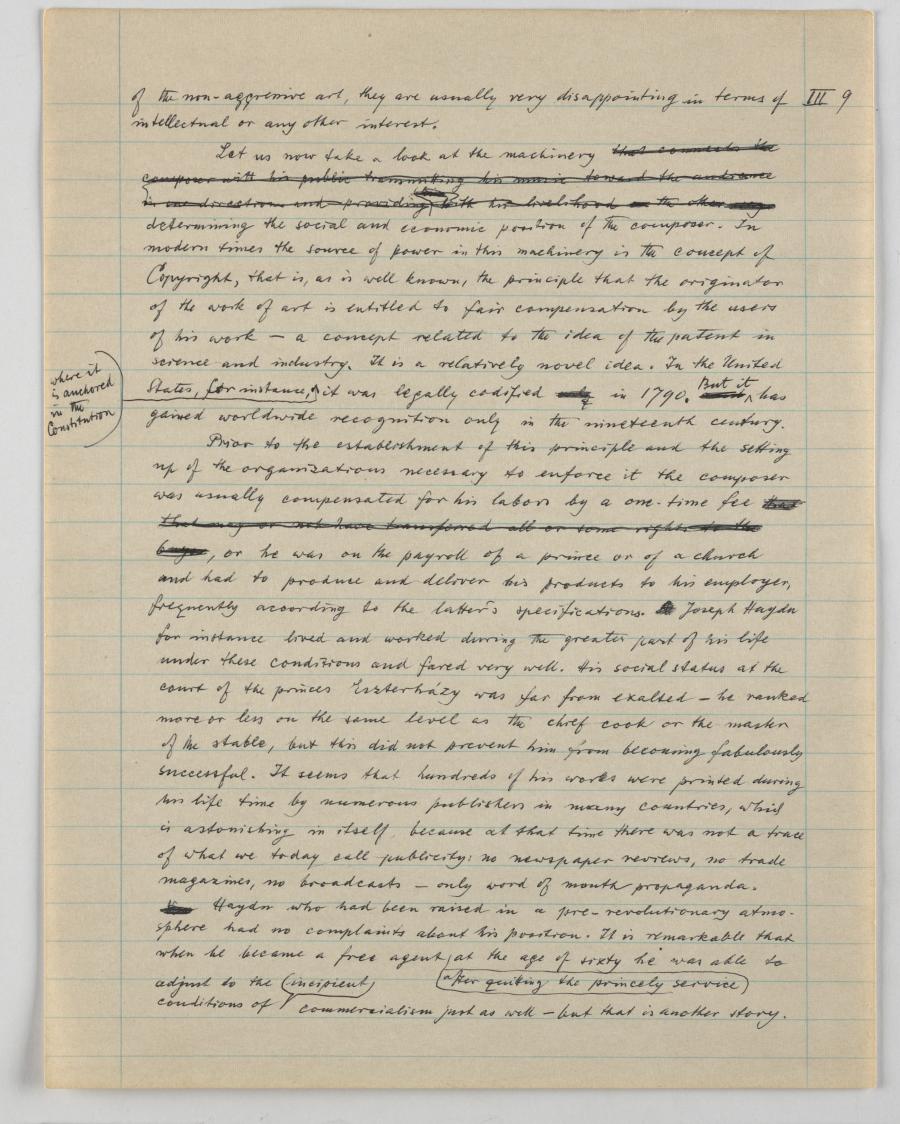 of the non-aggressive art, they are usually very disappointing in terms of III 9
intellectual or any other interest.
Let us now take a look at the machinery that connects the
composer with his public transmitting his music toward the audience
in one directions and providing him with his livelihood on the other
determining the social and economic position of the composer. In
modern times the source of power in this machinery is the concept of
Copyright, that is, as is well known, the principle that the originator
of the work of art is entitled to fair compensation by the users
of his work – a concept related to the idea of the patent in
science and industry. It is a relatively novel idea. In the United
where it
is anchored
in the
Constitution
States, for instance, it was legally codified only in 1790. But it has
gained worldwide recognition only in the nineteenth century.
Prior to the establishment of this principle and the setting
up of the organizations necessary to enforce it the composer
was usually compensated for his labors by a one-time fee that
that may or not have transferred all or some rights to the
buyer, or he was on the payroll of a prince or of a church
and had to produce and deliver his products to his employer,
frequently according to the latter's specifications. Joseph Haydn
for instance lived and worked during the greater part of his life
under these conditions and fared very well. His social status at the
court of the princes Eszterházy was far from exalted – he ranked
more or less on the same level as the chief cook or the master
of the stable, but this did not prevent him from becoming fabulously
successful. It seems that hundreds of his works were printed during
his life time by numerous publishers in many countries, which
is astonishing in itself, because at that time there was not a trace
of what we today call publicity: no newspaper reviews, no trade
magazines, no broadcasts – only word of mouth propaganda.
Haydn who had been raised in a pre-revolutionary atmo-
sphere had no complaints about his position. It is remarkable that
when he became a free agent at the age of sixty he was able to
adjust to the incipient after quitting the princely service
conditions of commercialism just as well – but that is another story.